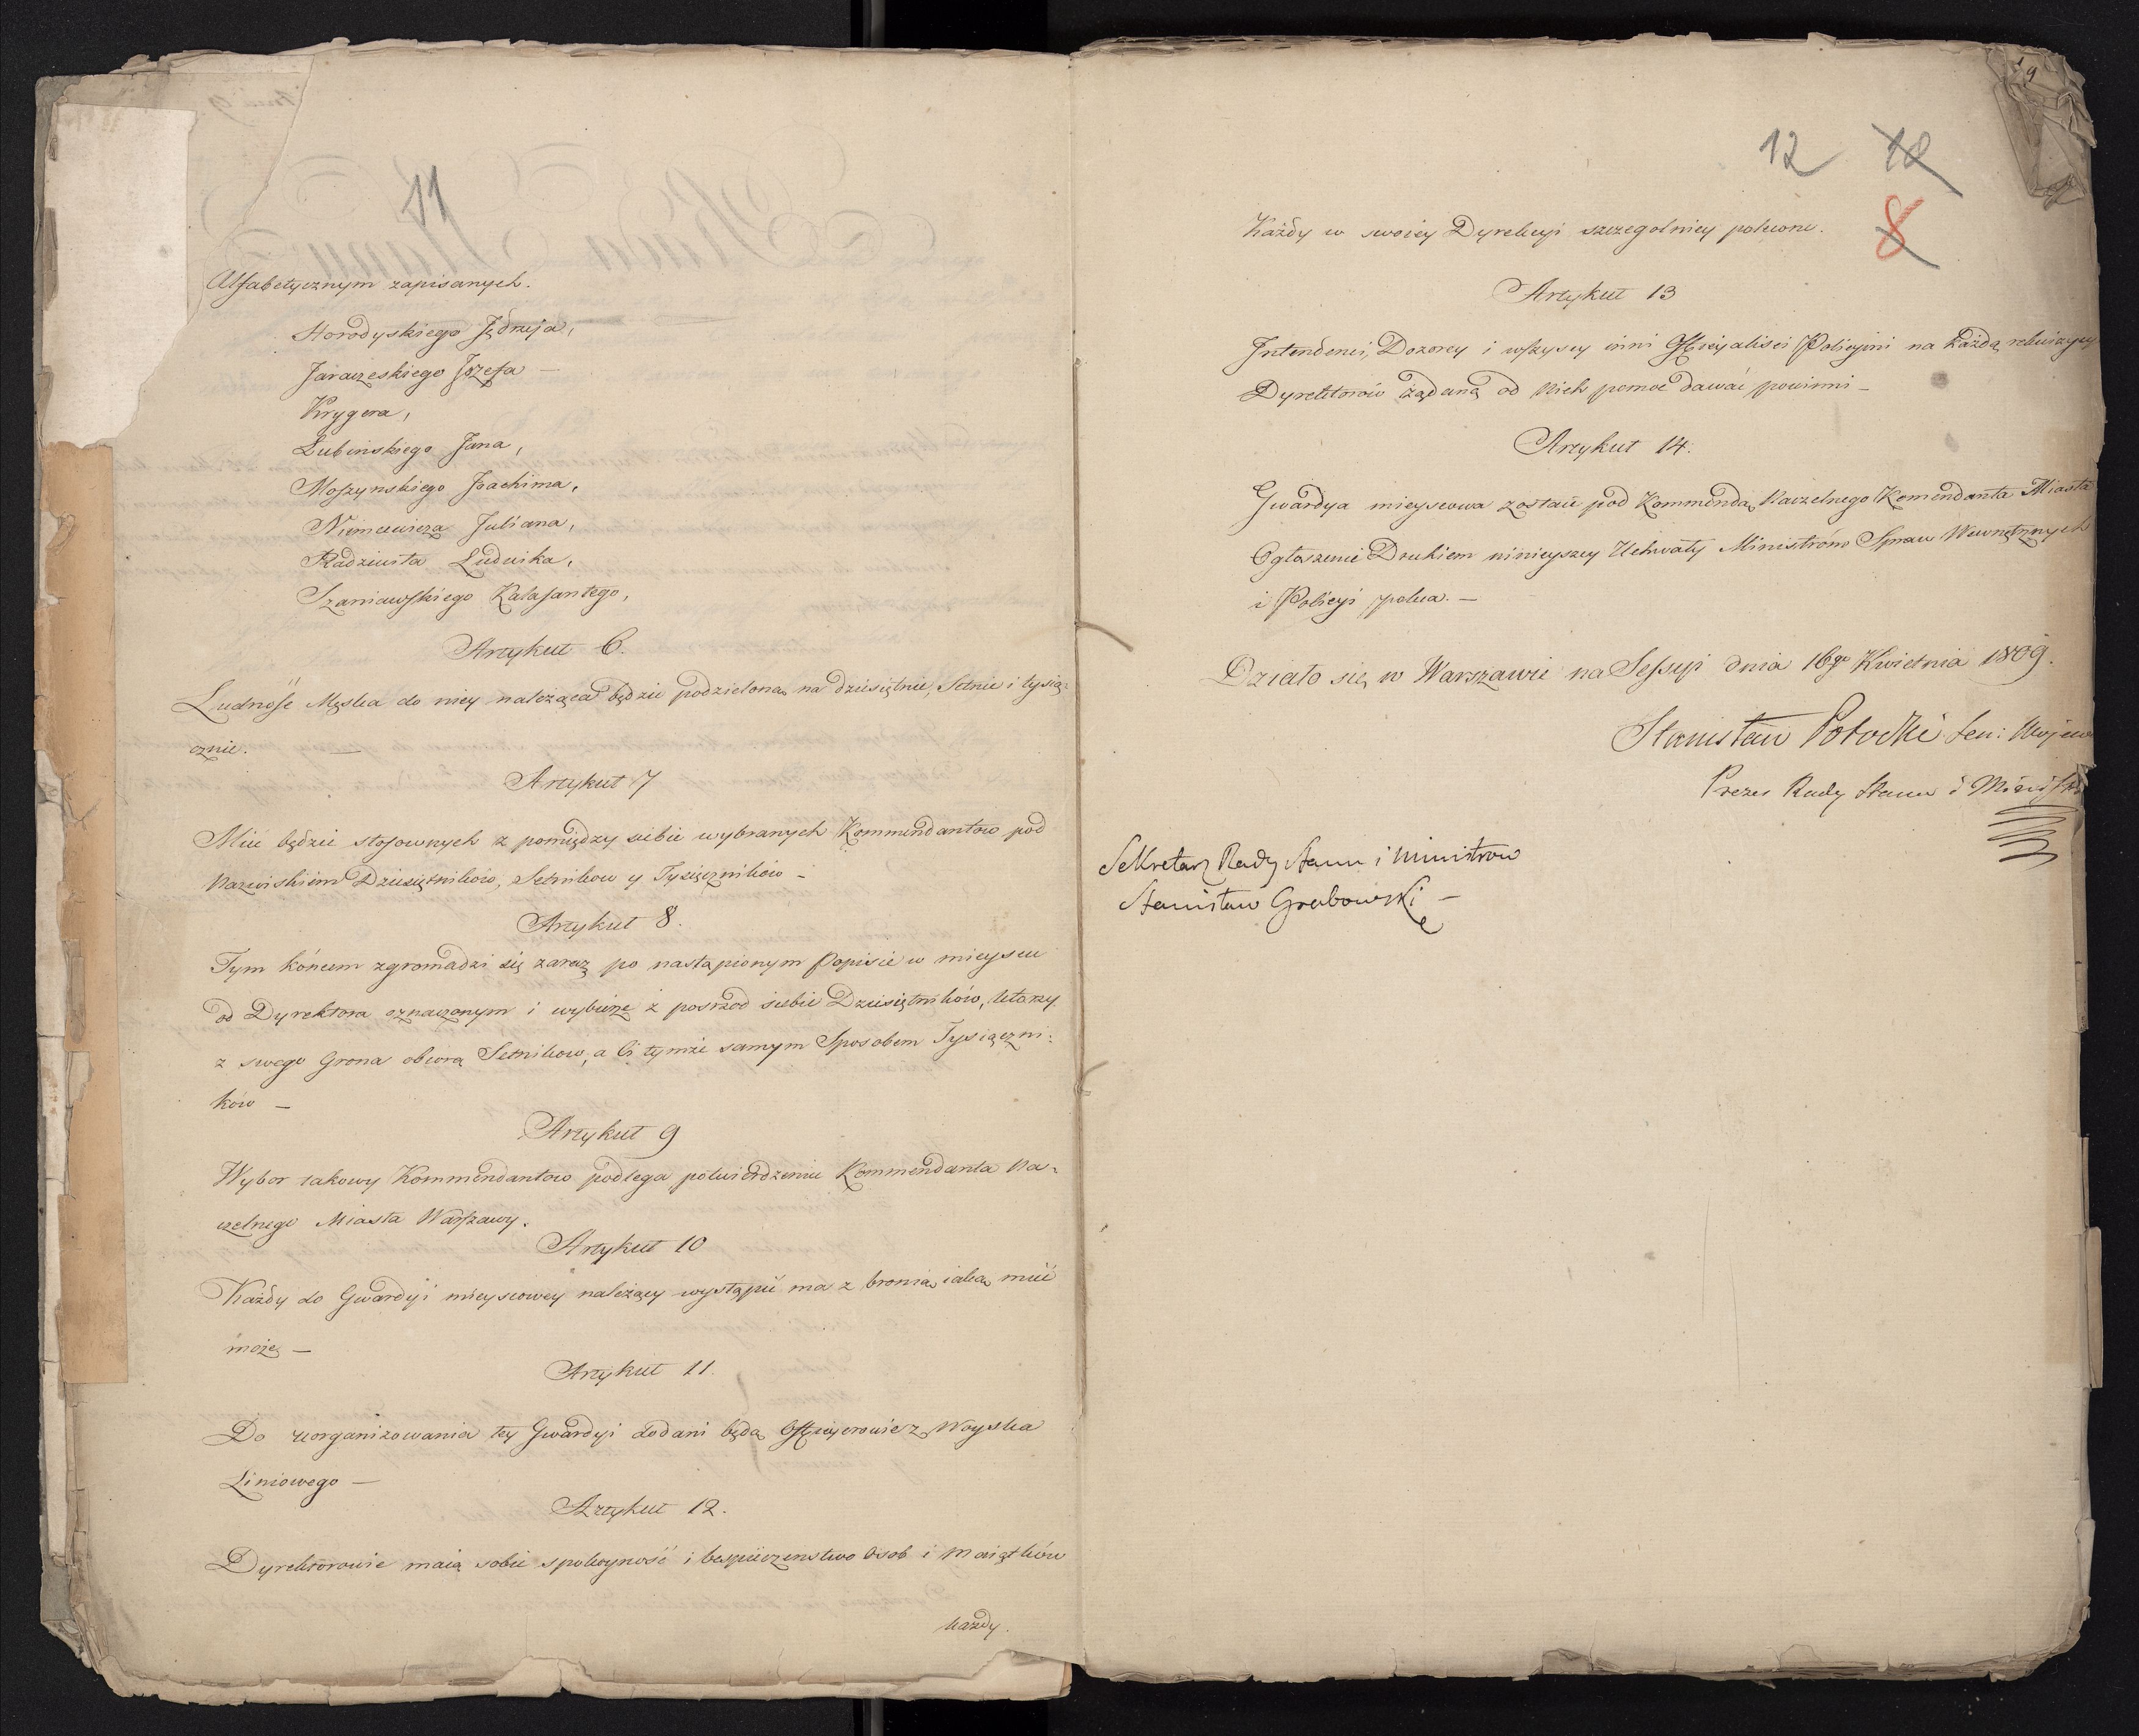 11
Alfabetycznym zapisanych.
Horodyskiego Jędrzeja,
Jaraczeskiego Józefa —
Krygera,
Lubinskiego Jana,
Moszynskiego Joachima,
Niemcewicza Juliana,
Radziwiła Ludwika,
Szaniawskiego Kalasantego,
Artykuł 6.
Ludność Męska do niey należąca będzie podzielona na dziesiętnie, Setnie i tysią-
cznie. —
Artykuł 7
Mieć będzie stosownych z pomiędzy siebie wybranych Kommendantow pod
Nazwiskiem Dziesiętników, Setnikow y Tysięczników —
Artykuł 8.
Tym końcem zgromadzi się zaraz po nastąpionym Popisie w mieyscu
od Dyrektora oznaczonym i wybierze z posrzod siebie Dziesiętników, ktorzy
z swego Grona obiorą Setnikow, a Ci tymże samym Sposobem Tysiączni-
ków —
Artykuł 9
Wybor takowy Kommendantow podlega potwierdzeniu Kommendanta Na-
czelnego Miasta Warszawy.
Artykuł 10
Każdy do Gwardyi mieyscowey należący wystąpić ma z bronią iaką mieć
może —
Artykuł 11.
Do uorganizowania tey Gwardyi dodani będą Officyerowie z Woyska
Liniowego —
Artykuł 12.
Dyrektorowie maią sobie spokoyność i bespieczenstwo Osob i Maiątków
każdy.
9
12 18
8
Każdy w swoiey Dyrekcyi szczegolniey polecone.
Artykuł 13
Intendenci, Dozorcy i wszyscy inni Officyalisci Policyini na każdą rekwizycyą
Dyrektorów żądaną od Nich pomoc dawać powinni —
Artykuł 14.
Gwardya mieyscowa zostaie pod Kommendą Naczelnego Komendanta Miasta
Ogłoszenie Drukiem ninieyszey Uchwały Ministróm Spraw Wewnętrznych
i Policyi poleca. —
Działo się w Warszawie na Sessyi dnia 16go Kwietnia 1809.
Stanisław Potocki Sen: Wojew
Prezes Rady Stanu i Ministrów
Sekretarz Rady Stanu i Ministrow
Stanisław Grabowski —